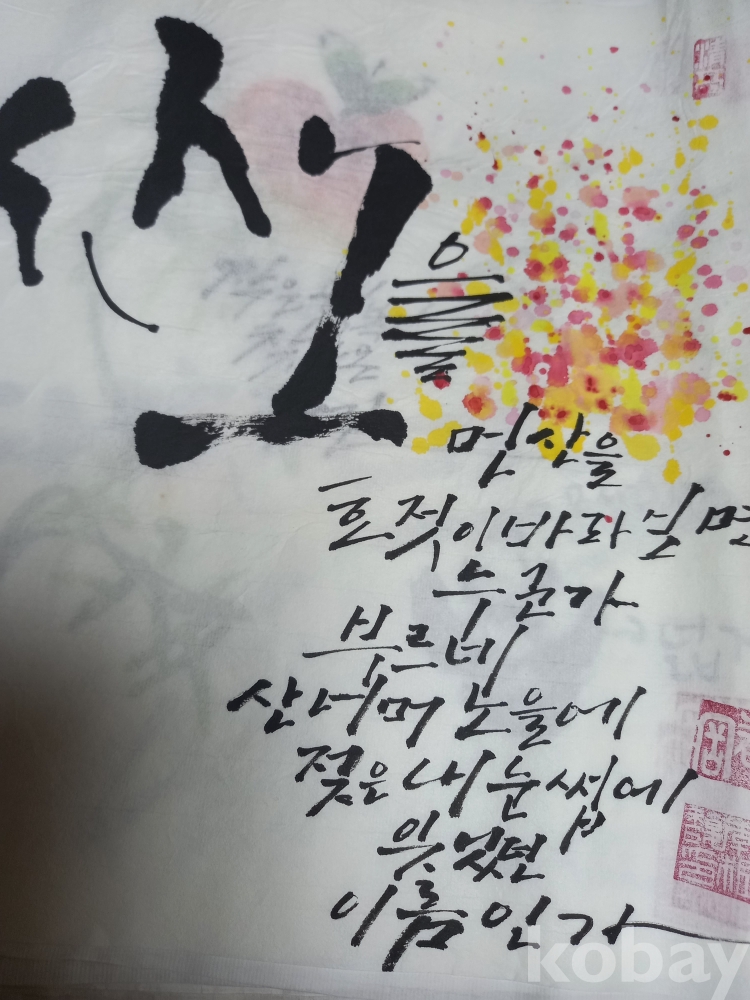 산노을
먼 산을
호젓이 바라보면
누군가
부르네
산 너머 노을에
젖은 내 눈썹에
잊었던
이름인가
kobay